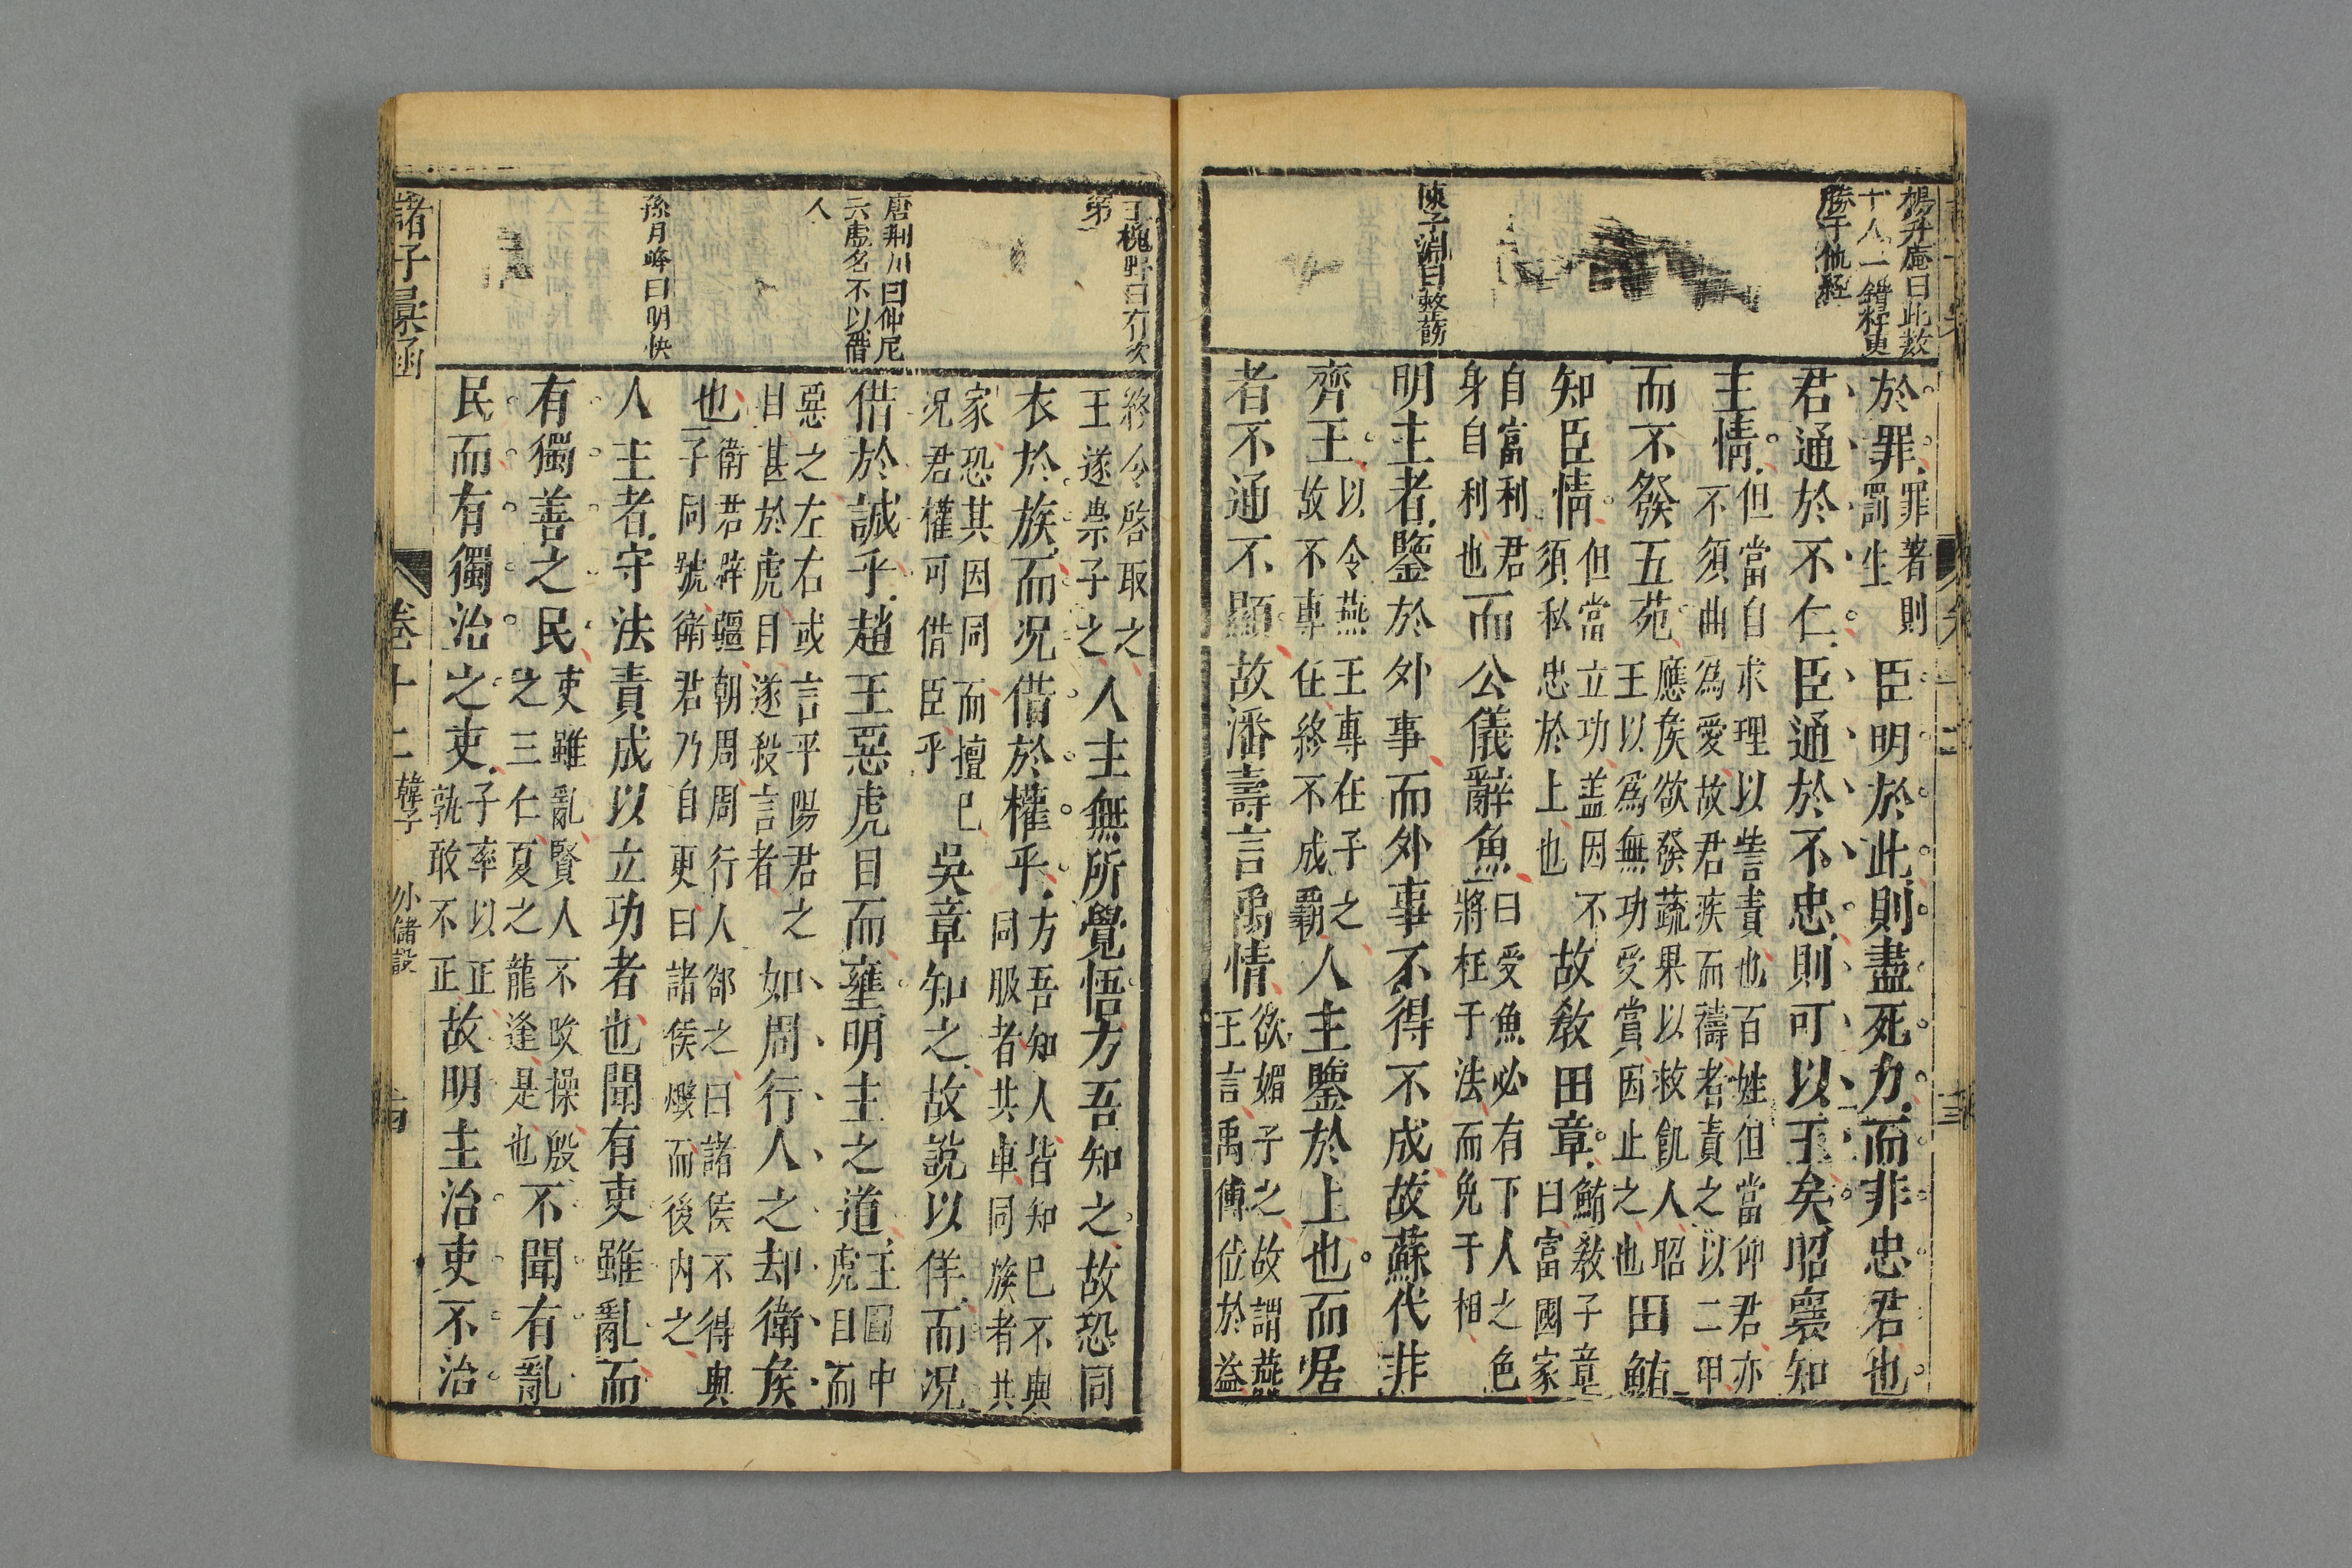 楊升庵曰此數
十人一錯粹更
陳子淵曰整餝
於罪罪著則
罰生臣明於此則盡死力而非忠君也
君通於不仁臣通於不忠則可以王矣昭襄知
主情但當自求理以告責也百姓但當仰君亦
不須曲為愛故君疾而禱者責之以二甲
而不發五苑應矦欲發蔬果以救飢人昭
王以為無功受賞因止之也田鮪
知臣情但當立功盖因不
須私忠於上也故敎田章鮪敎子章
曰富國家
自富利君
身自利也而公儀辭魚曰受魚必有下人之色
將枉于法而免于相
明主者鑒於外事而外事不得不成故蘇代非
齊王以令燕王專在子之
故不專任終不成覇人主鑒於上也而居
者不通不顯故潘壽言禹情欲媚子之故謂燕
王言禹傳位於益
王槐野曰有次
第
唐荆川曰仲尼
云虛名不以借
人
孫月峰曰明快
終令啓取之
王遂崇子之人主無所覺悟方吾知之故恐同
衣於族而況借於權乎方吾知人皆知已不與
同服者共車同族者共
家恐其因同而擅已
況君權可借臣乎吳章知之故說以佯而況
借於誠乎趙王惡虎目而壅明主之道王圃中
虎目而
惡之左右或言平陽君之
目甚於虎目遂殺言者如周行人之却衛矦
也衛君辟疆朝周周行人郤之曰諸侯不得與
子同號衛君乃自更曰諸侯燬而後内之
人主者守法責成以立功者也聞有吏雖亂而
有獨善之民吏雖亂賢人不改操殷
之三仁夏之龍逢是也不聞有亂
民而有獨治之吏子率以正
孰敢不正故明主治吏不治
諸子彙函 卷十二 韓子 外儲說 古